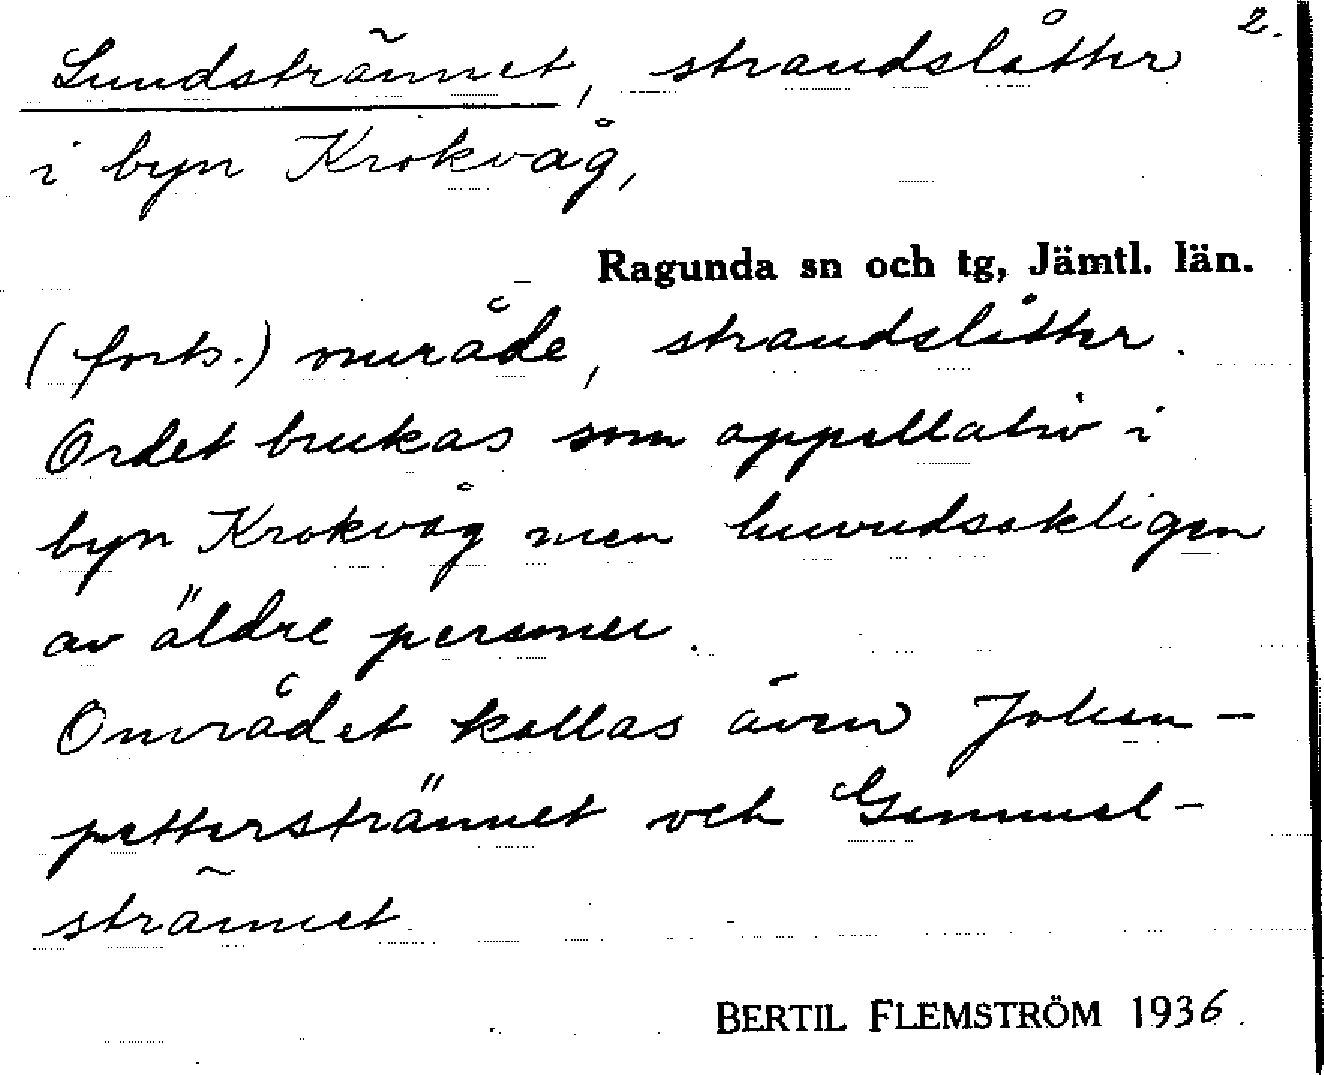 2.
Lundstrännet, strandslåtter
i byn Krokvåg,
Ragunda sn och tg, Jämtl. län.
(forts.) område, strandslåtter.
Ordet brukas som appellativ i
byn Krokvåg men huvudsakligen
av äldre personer.
Området kallas även Johan-
petterstrännet och Gammel-
strännet
BERTIL FLEMSTRÖM 1936.